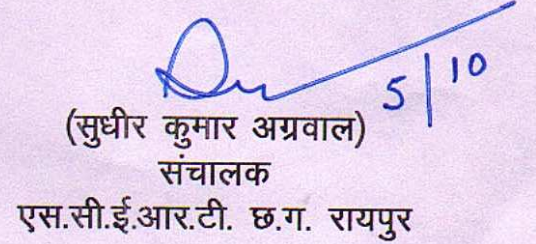 5/10
(सुधीर कुमार अग्रवाल)
संचालक
एस.सी.ई.आर.टी. छ.ग. रायपुर